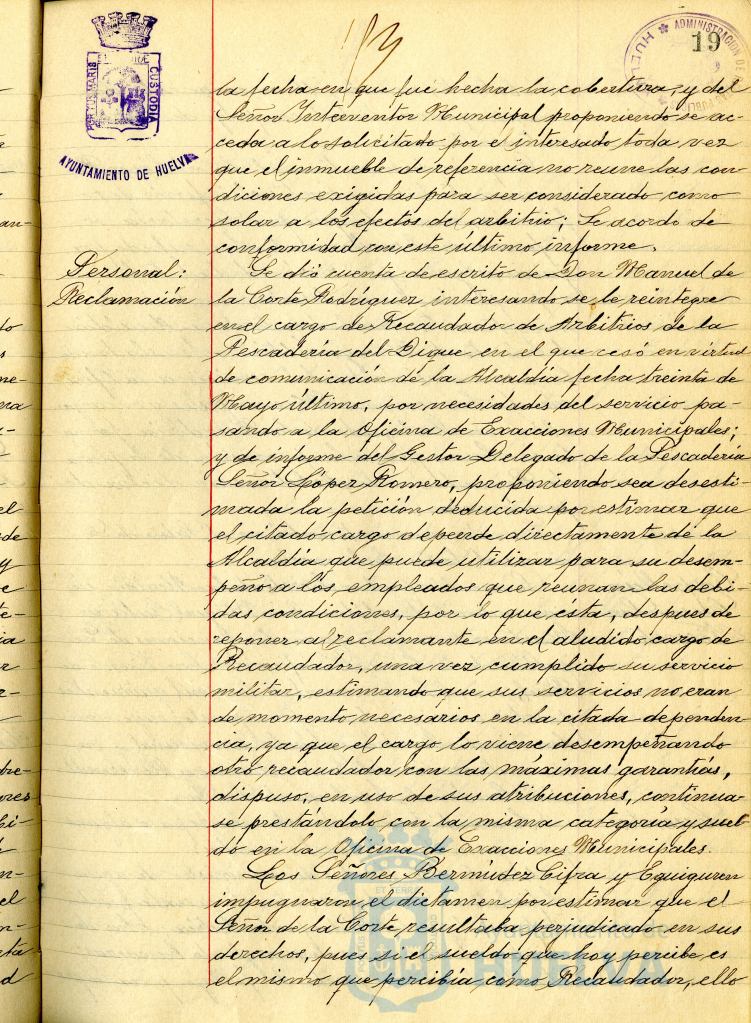 19
AYUNTAMIENTO DE HUELVA
CUSTODIA
ADMINISTRACION DE
la fecha en que fué hecha la cobertura, y del
Señor Interventor Municipal proponiendo se ac-
ceda a lo solicitado por el interesado toda vez
que el inmueble de referencia no reune las con-
diciones exigidas para ser considerado como
solar a los efectos del arbitrio; Se acordo de
conformidad con este último informe.
Personal:
Reclamación
Se dió cuenta de escrito de Don Manuel de
la Corte Rodríguez interesando se le reintegre
en el cargo de Recaudador de Arbitrios de la
Pescadería del Dique en el que cesó en virtud
de comunicación de la Alcaldía fecha treinta de
Mayo último, por necesidades del servicio pa-
sando a la Oficina de Exacciones Municipales;
y de informe del Gestor Delegado de la Pescadería
Señor López Romero, proponiendo sea desesti-
mada la petición deducida por estimar que
el citado cargo depende directamente de la
Alcaldía que puede utilizar para su desem-
peño a los empleados que reunan las debi-
das condiciones, por lo que esta, despues de
reponer al reclamante en el aludido cargo de
Recaudador, una vez cumplido su servicio
militar, estimando que sus servicios no eran
de momento necesarios en la citada dependen-
cia, ya que el cargo lo viene desempeñando
otro recaudador con las máximas garantías,
dispuso, en uso de sus atribuciones, continua-
se prestándolo con la misma categoría y suel-
do en la Oficina de Exacciones Municipales.
Los Señores Bermúdez Cifra y Eguiguren
impugnaron el dictamen por estimar que el
Señor de la Corte resultaba perjudicado en sus
derechos, pues si el sueldo que hoy percibe es
el mismo que percibía como Recaudador, ello
HUELVA